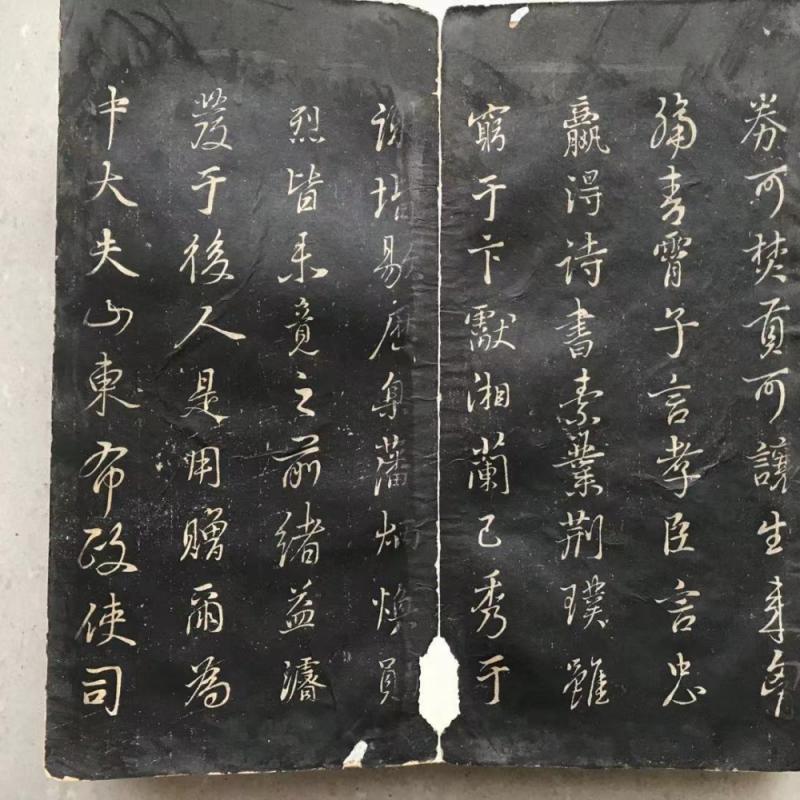 券可焚可讓生来
青霄子言孝臣言忠
贏得诗書素業荆璞雖
窮于卞獻湘蘭已秀于
謝堦敭歷臬藩炳煥員
烈皆未竟之前緒益濬
發于後人是用贈爾為
中大夫山東布政使司